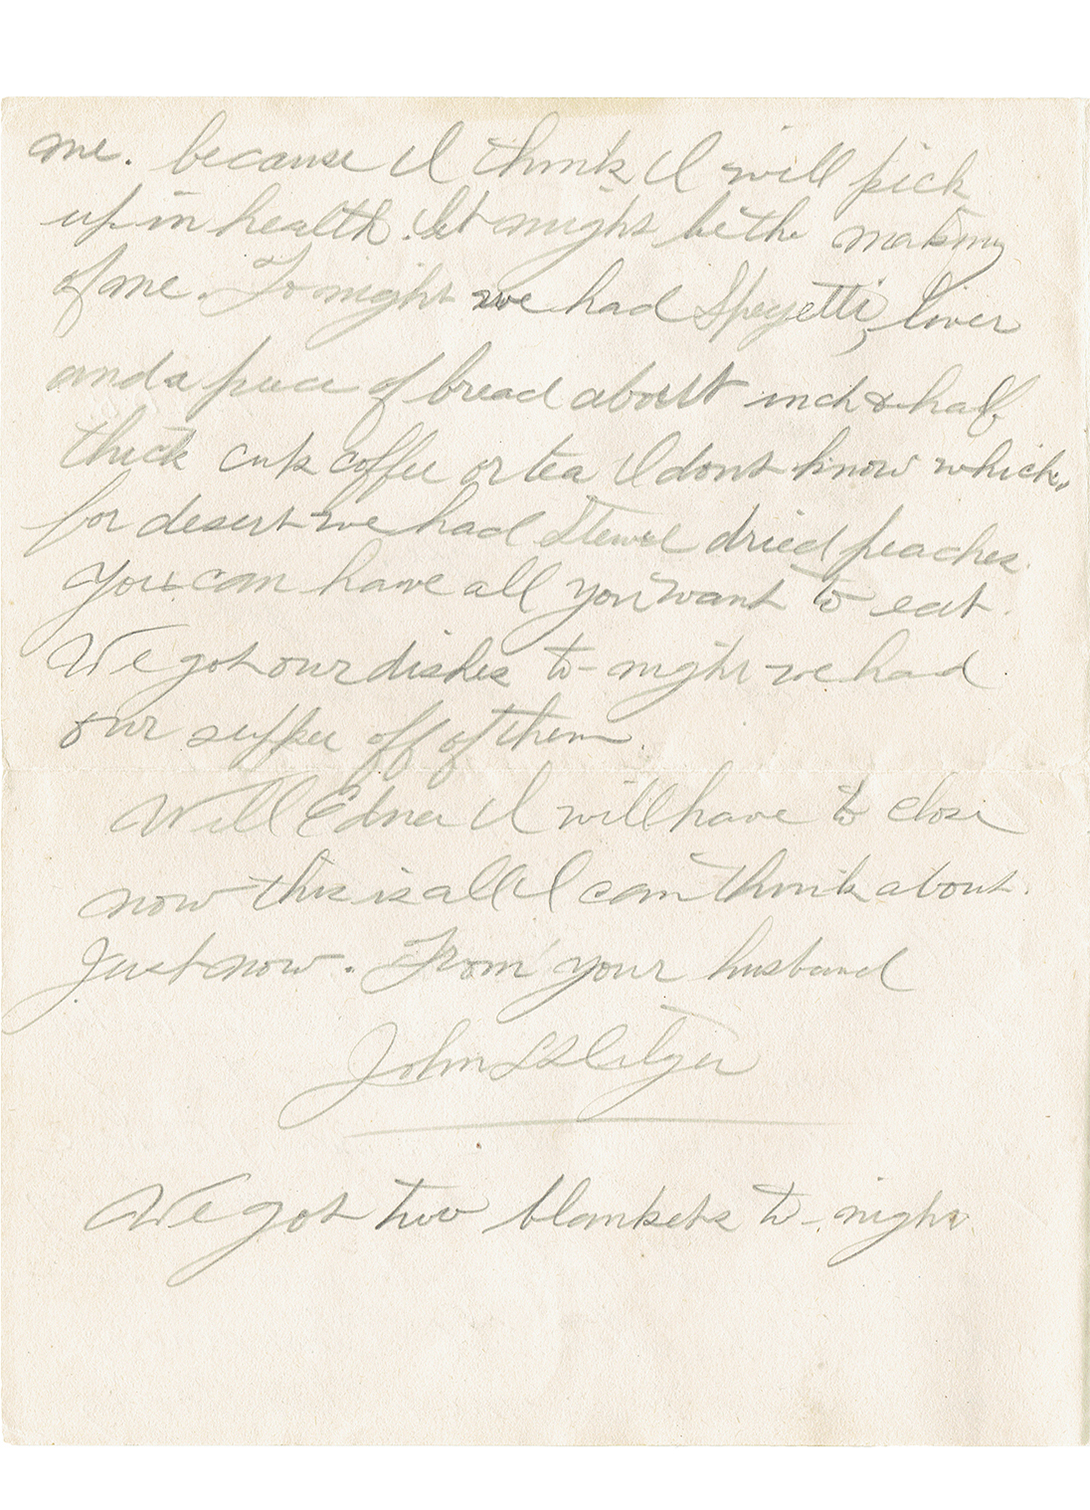 me. because I think I will pick
up in health. It might be the making
of me. To night we had Spegetti, liver
and a peice of bread about inch & half
thick cup coffee or tea I dont know which,
for desert we had Stewed dried peaches.
you can have all you want to eat.
We got our dishes to-night we had
our supper off of them.
Well Edna I will have to close
now this is all I can think about
Just now. From your husband
John L Slitzer
We got two blankets to-night